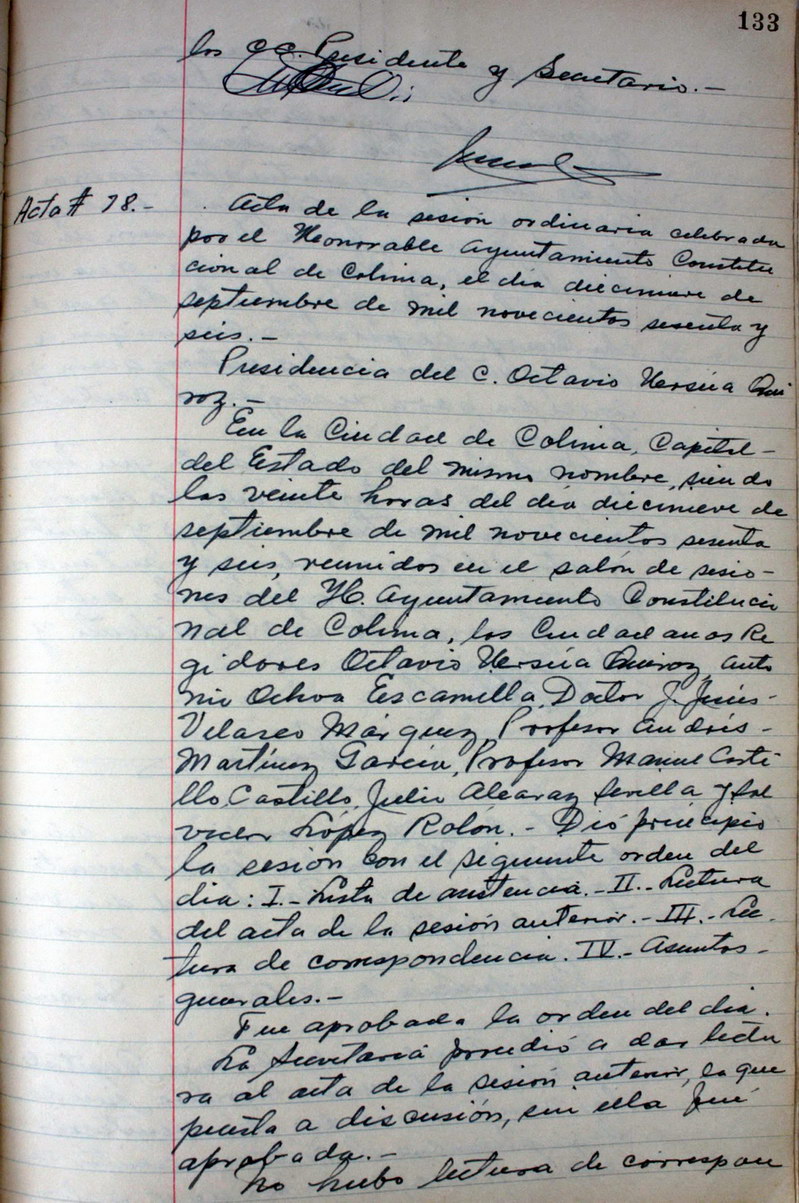 133
los CC. Presidente y Secretario.-
Acta # 78.-
Acta de la sesión ordinaria celebrada
por el Honorable Ayuntamiento Constitu
cional de Colima, el día diecinueve de
septiembre de mil novecientos sesenta y
seis.-
Presidencia del C. Octavio Ursúa Qui
roz.-
En la Ciudad de Colima, Capital-
del Estado del mismo nombre, siendo
las veinte horas del día diecinueve de
septiembre de mil novecientos sesenta
y seis, reunidos en el salón de sesio-
nes del H. Ayuntamiento Constitucio
nal de Colima, los Ciudadanos Re
gidores Octavio Ursúa Quiroz, Anto
nio Ochoa Escamilla, Doctor J. Jesús-
Velasco Márquez, Profesor Andrés-
Martínez García, Profesor Manuel Casti
llo Castillo, Julio Alcaraz Sevilla y Sal
vador López Rolón.- Dió principio
la sesión con el siguiente orden del
día: I.- Lista de asistencia.- II.- Lectura
del acta de la sesión anterior.- III.- Lec-
tura de correspondencia. IV.- Asuntos-
generales.-
Fue aprobada la orden del día.
La Secretaría procedió a dar lectu
ra al acta de la sesión anterior, la que
puesta a discusión, sin ella fué
aprobada.-
No hubo lectura de correspon